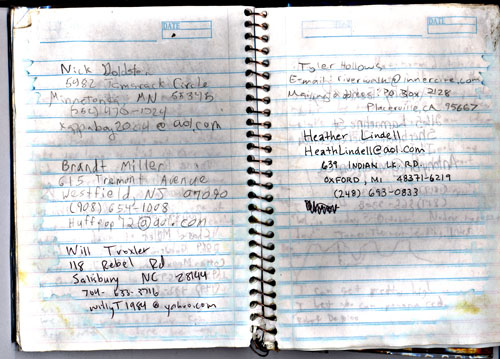 DATE
Nick
5482 Tamarack Circle
Minnetonka, MN 55345
@aol.com
Brandt Miller
615 Tremont Avenue
Westfield NJ 07090
(908) 654-1008
@aol.com
Will Troxler
118 Rebel Rd
Salisbury NC 28144
704- 633-3716
willyT1984@yahoo.com
DATE
Tyler Hollows
E-mail: riverwalk@innercite.com
Mailing address: P.O. Box 2128
Placerville, CA 95667
Heather Lindell
HeathLindell@aol.com
639 INDIAN LK RD
OXFORD, MI 48371-6219
(248) 693-0833